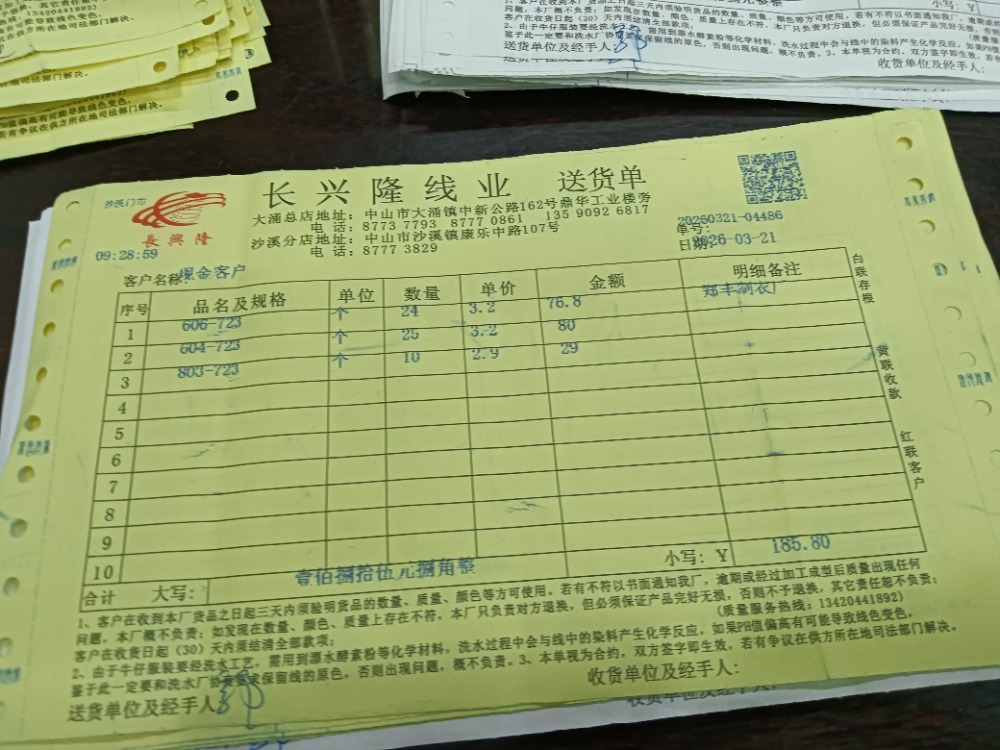 小写：Y
送货单位及经手人：
收货单位及经手人：
沙溪门市
長興隆
长兴隆线业 送货单
大涌总店地址：中山市大涌镇中新公路162号鼎华工业楼旁
电话：8773 7793 8777 0861 135 9092 6817
沙溪分店地址：中山市沙溪镇康乐中路107号
电话：8777 3829
09:28:59
单号：20260321-04486
日期：2026-03-21
客户名称：现金客户
序号 品名及规格 单位 数量 单价 金额 明细备注
1 606-723 个 24 3.2 76.8 郑丰制衣厂
2 604-723 个 25 3.2 80
3 803-723 个 10 2.9 29
4
5
6
7
8
9
10
合计 大写：壹佰捌拾伍元捌角整 小写：Y 185.80
白联存根
黄联收款
红联客户
1、客户在收到本厂货品之日起三天内须验明货品的数量、质量、颜色等方可使用。若有不符以书面通知我厂，逾期或经过加工成型后质量出现任何
问题，本厂概不负责；如发现在数量、颜色、质量上存在不符，本厂只负责对方退换，但必须保证产品完好无损，否则不予退换，其它责任恕不负责；
客户在收货日起（30）天内须结清全部款项；（质量服务热线：13420441892）
2、由于牛仔服装要经洗水工艺，需用到漂水酵素粉等化学材料，洗水过程中会与线中的染料产生化学反应，如果PH值偏高有可能导致线色变色，
鉴于此一定要和洗水厂协商要求保留线的原色，否则出现问题，概不负责。3、本单视为合约，双方签字即生效，若有争议在供方所在地司法部门解决。
送货单位及经手人
收货单位及经手人：